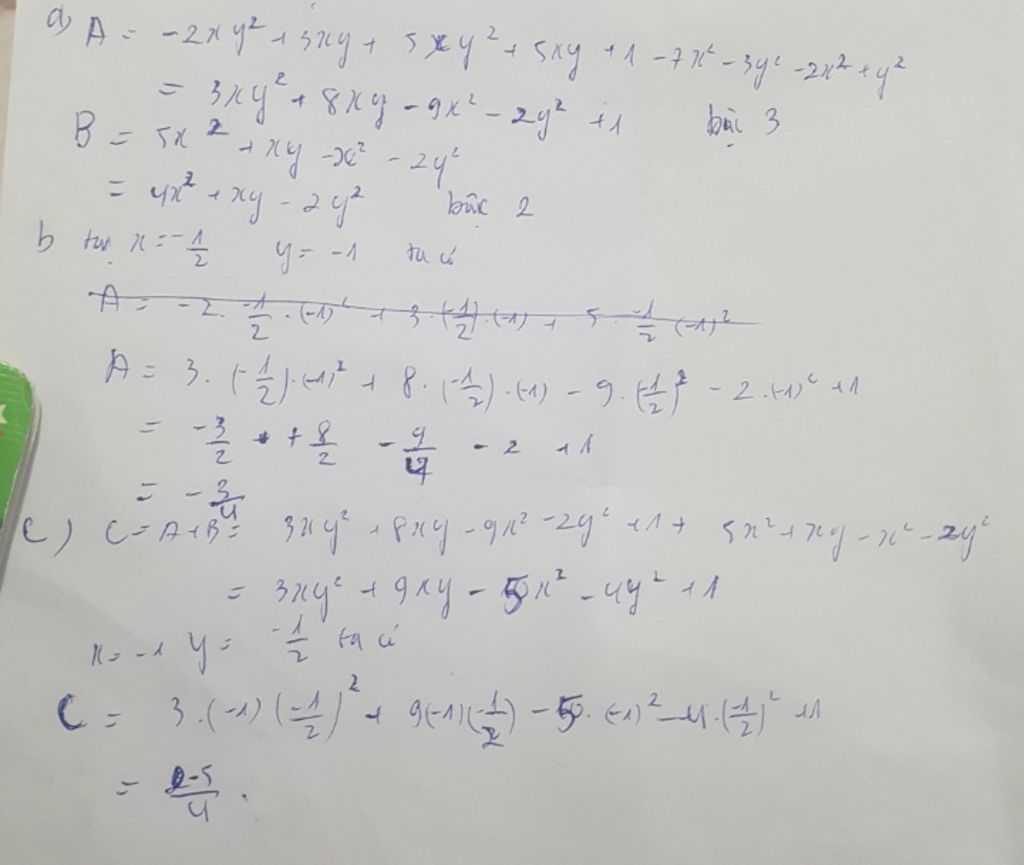 a) A = -2xy² + 3xy + 5xy² + 5xy + 1 - 7x² - 3y² - 2x² + y²
= 3xy² + 8xy - 9x² - 2y² + 1 bậc 3
B = 5x² + xy - x² - 2y²
= 4x² + xy - 2y² bậc 2
b tại x = -1/2 y = -1 ta có
A = -2 . -1/2 . (-1)² + 3 . (-1/2) . (-1) + 5 . -1/2 (-1)²
A = 3 . (-1/2) . (-1)² + 8 . (-1/2) . (-1) - 9 . (-1/2)² - 2 . (-1)² + 1
= -3/2 + 8/2 - 9/4 - 2 + 1
= -3/4
c) C = A + B = 3xy² + 8xy - 9x² - 2y² + 1 + 5x² + xy - x² - 2y²
= 3xy² + 9xy - 5x² - 4y² + 1
x = -1 y = -1/2 ta có
C = 3 . (-1) (-1/2)² + 9(-1)(-1/2) - 5 . (-1)² - 4 . (-1/2)² + 1
= -5/4 .